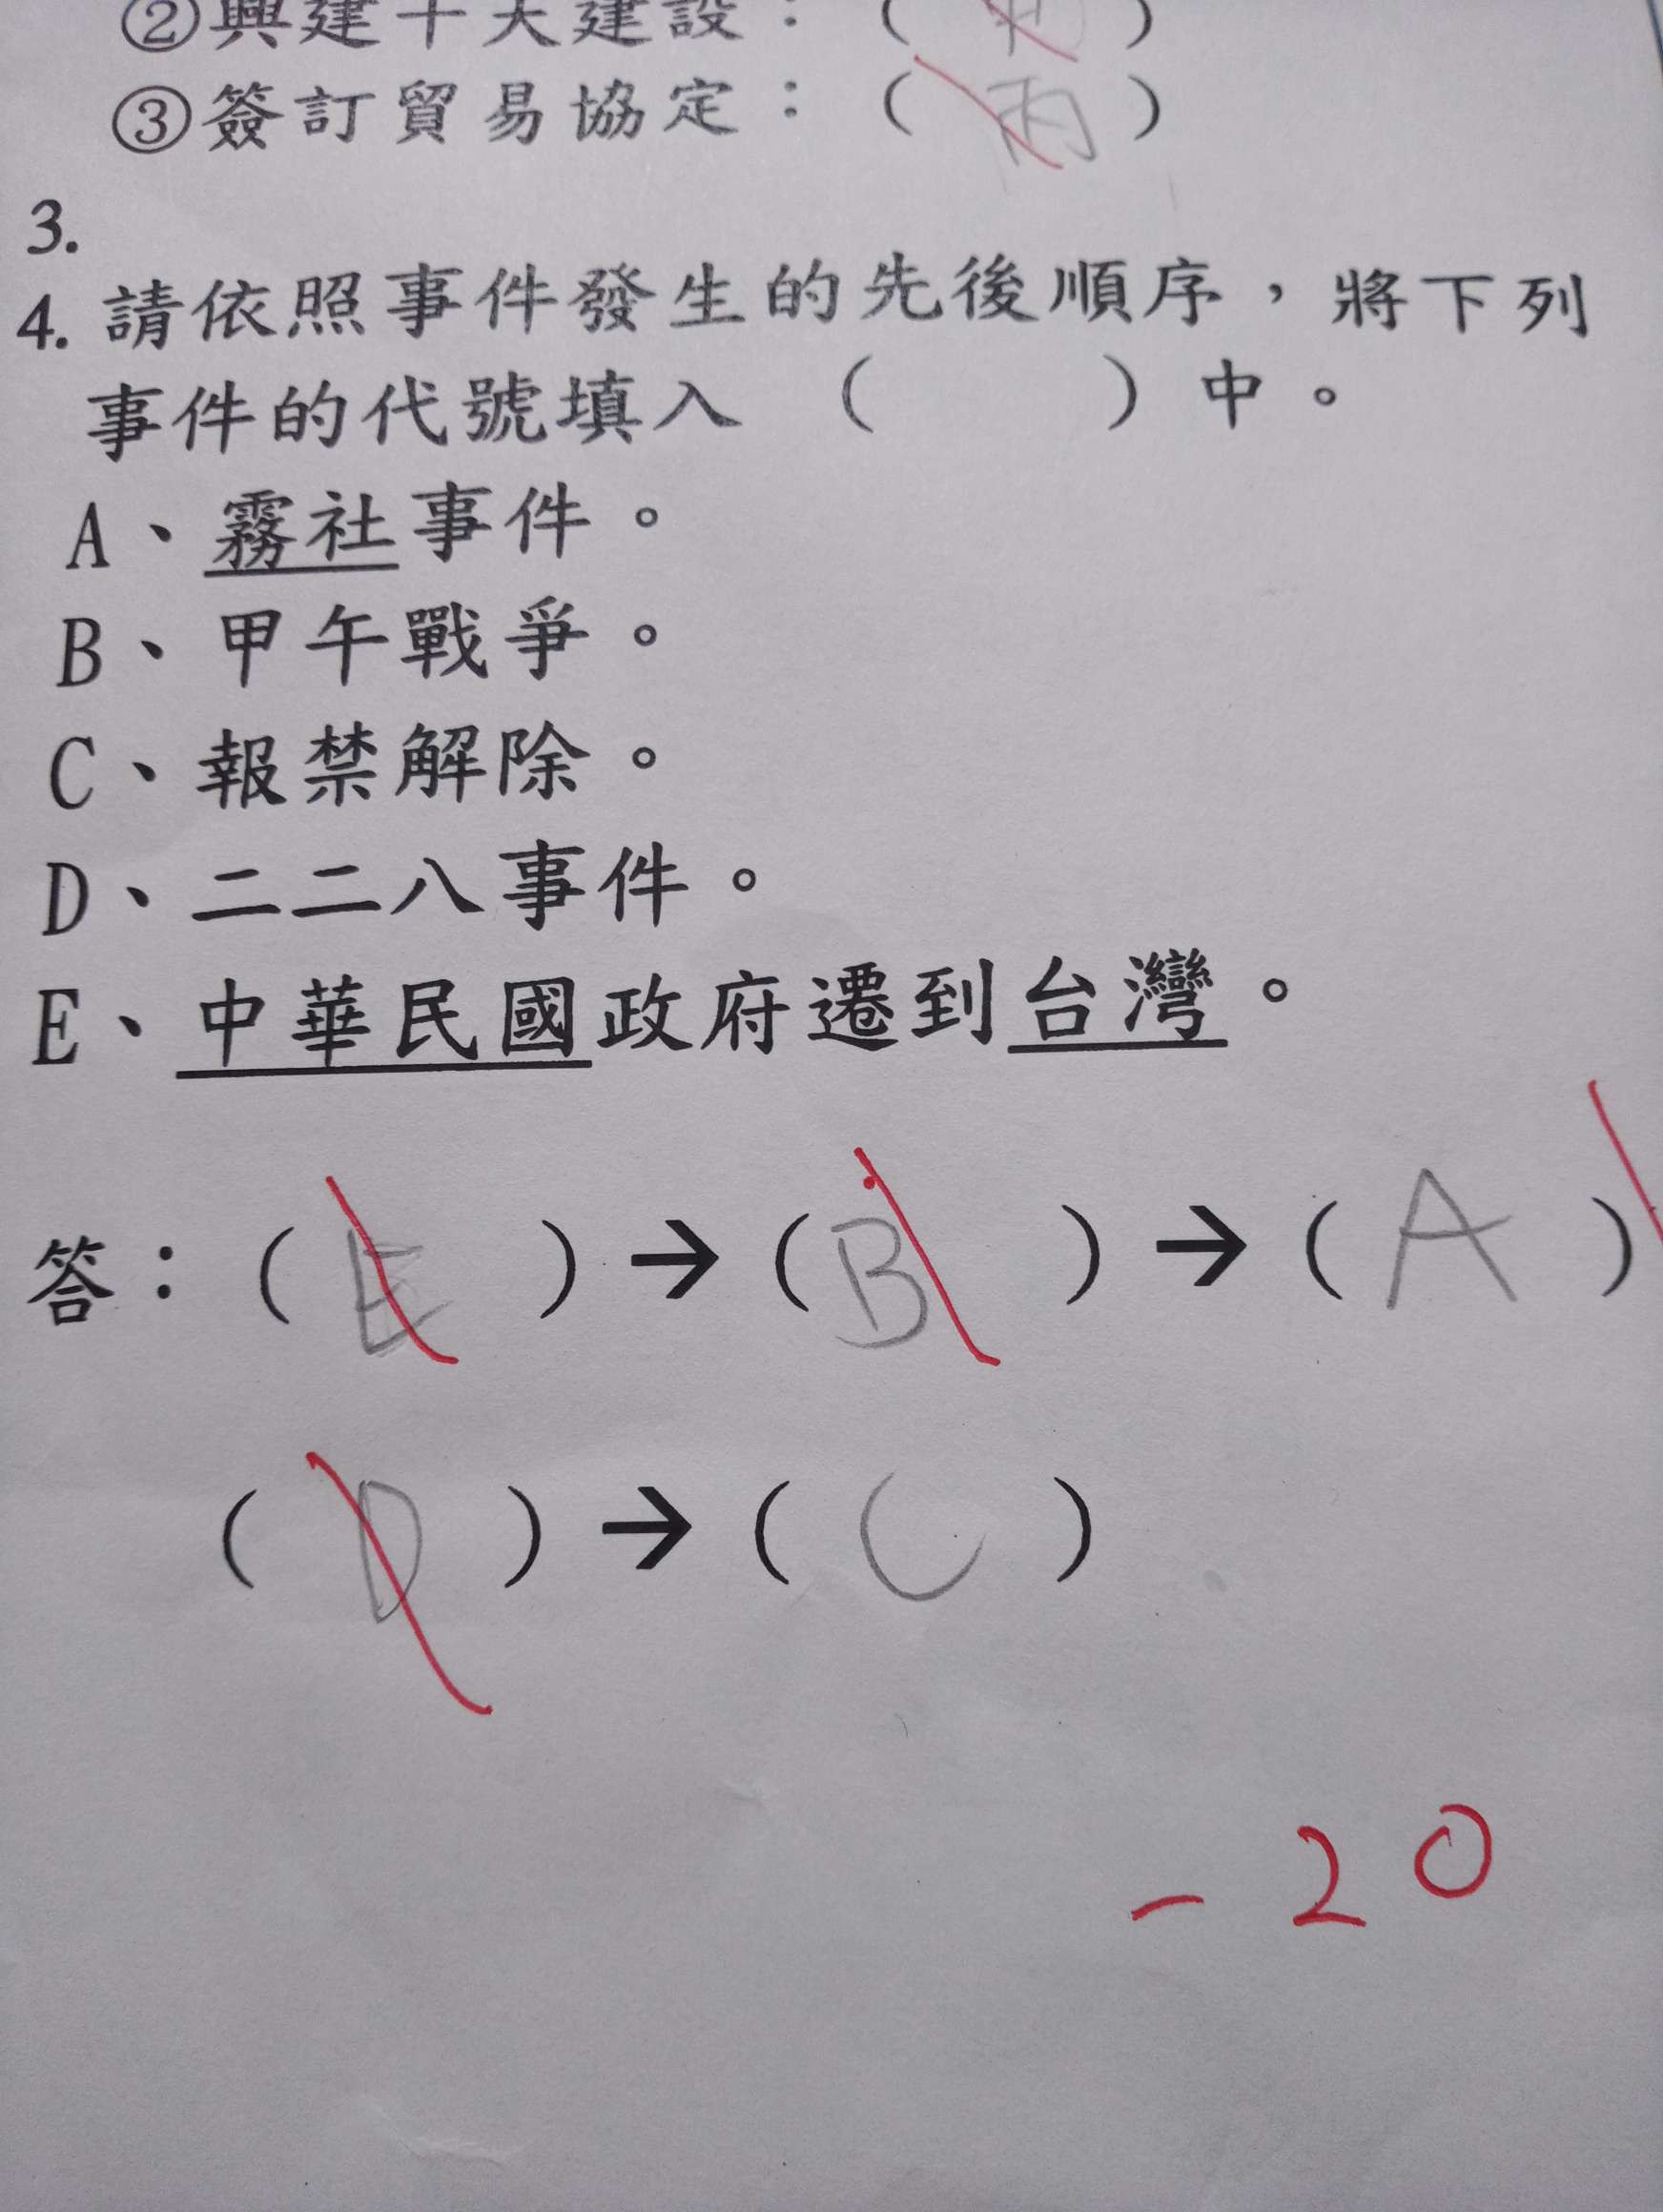 ②興建十大建設：（ ）
③簽訂貿易協定：（丙）
3.
4. 請依照事件發生的先後順序，將下列
事件的代號填入（ ）中。
A、霧社事件。
B、甲午戰爭。
C、報禁解除。
D、二二八事件。
E、中華民國政府遷到台灣。
答：（E）→（B）→（A）
（D）→（C）
-20